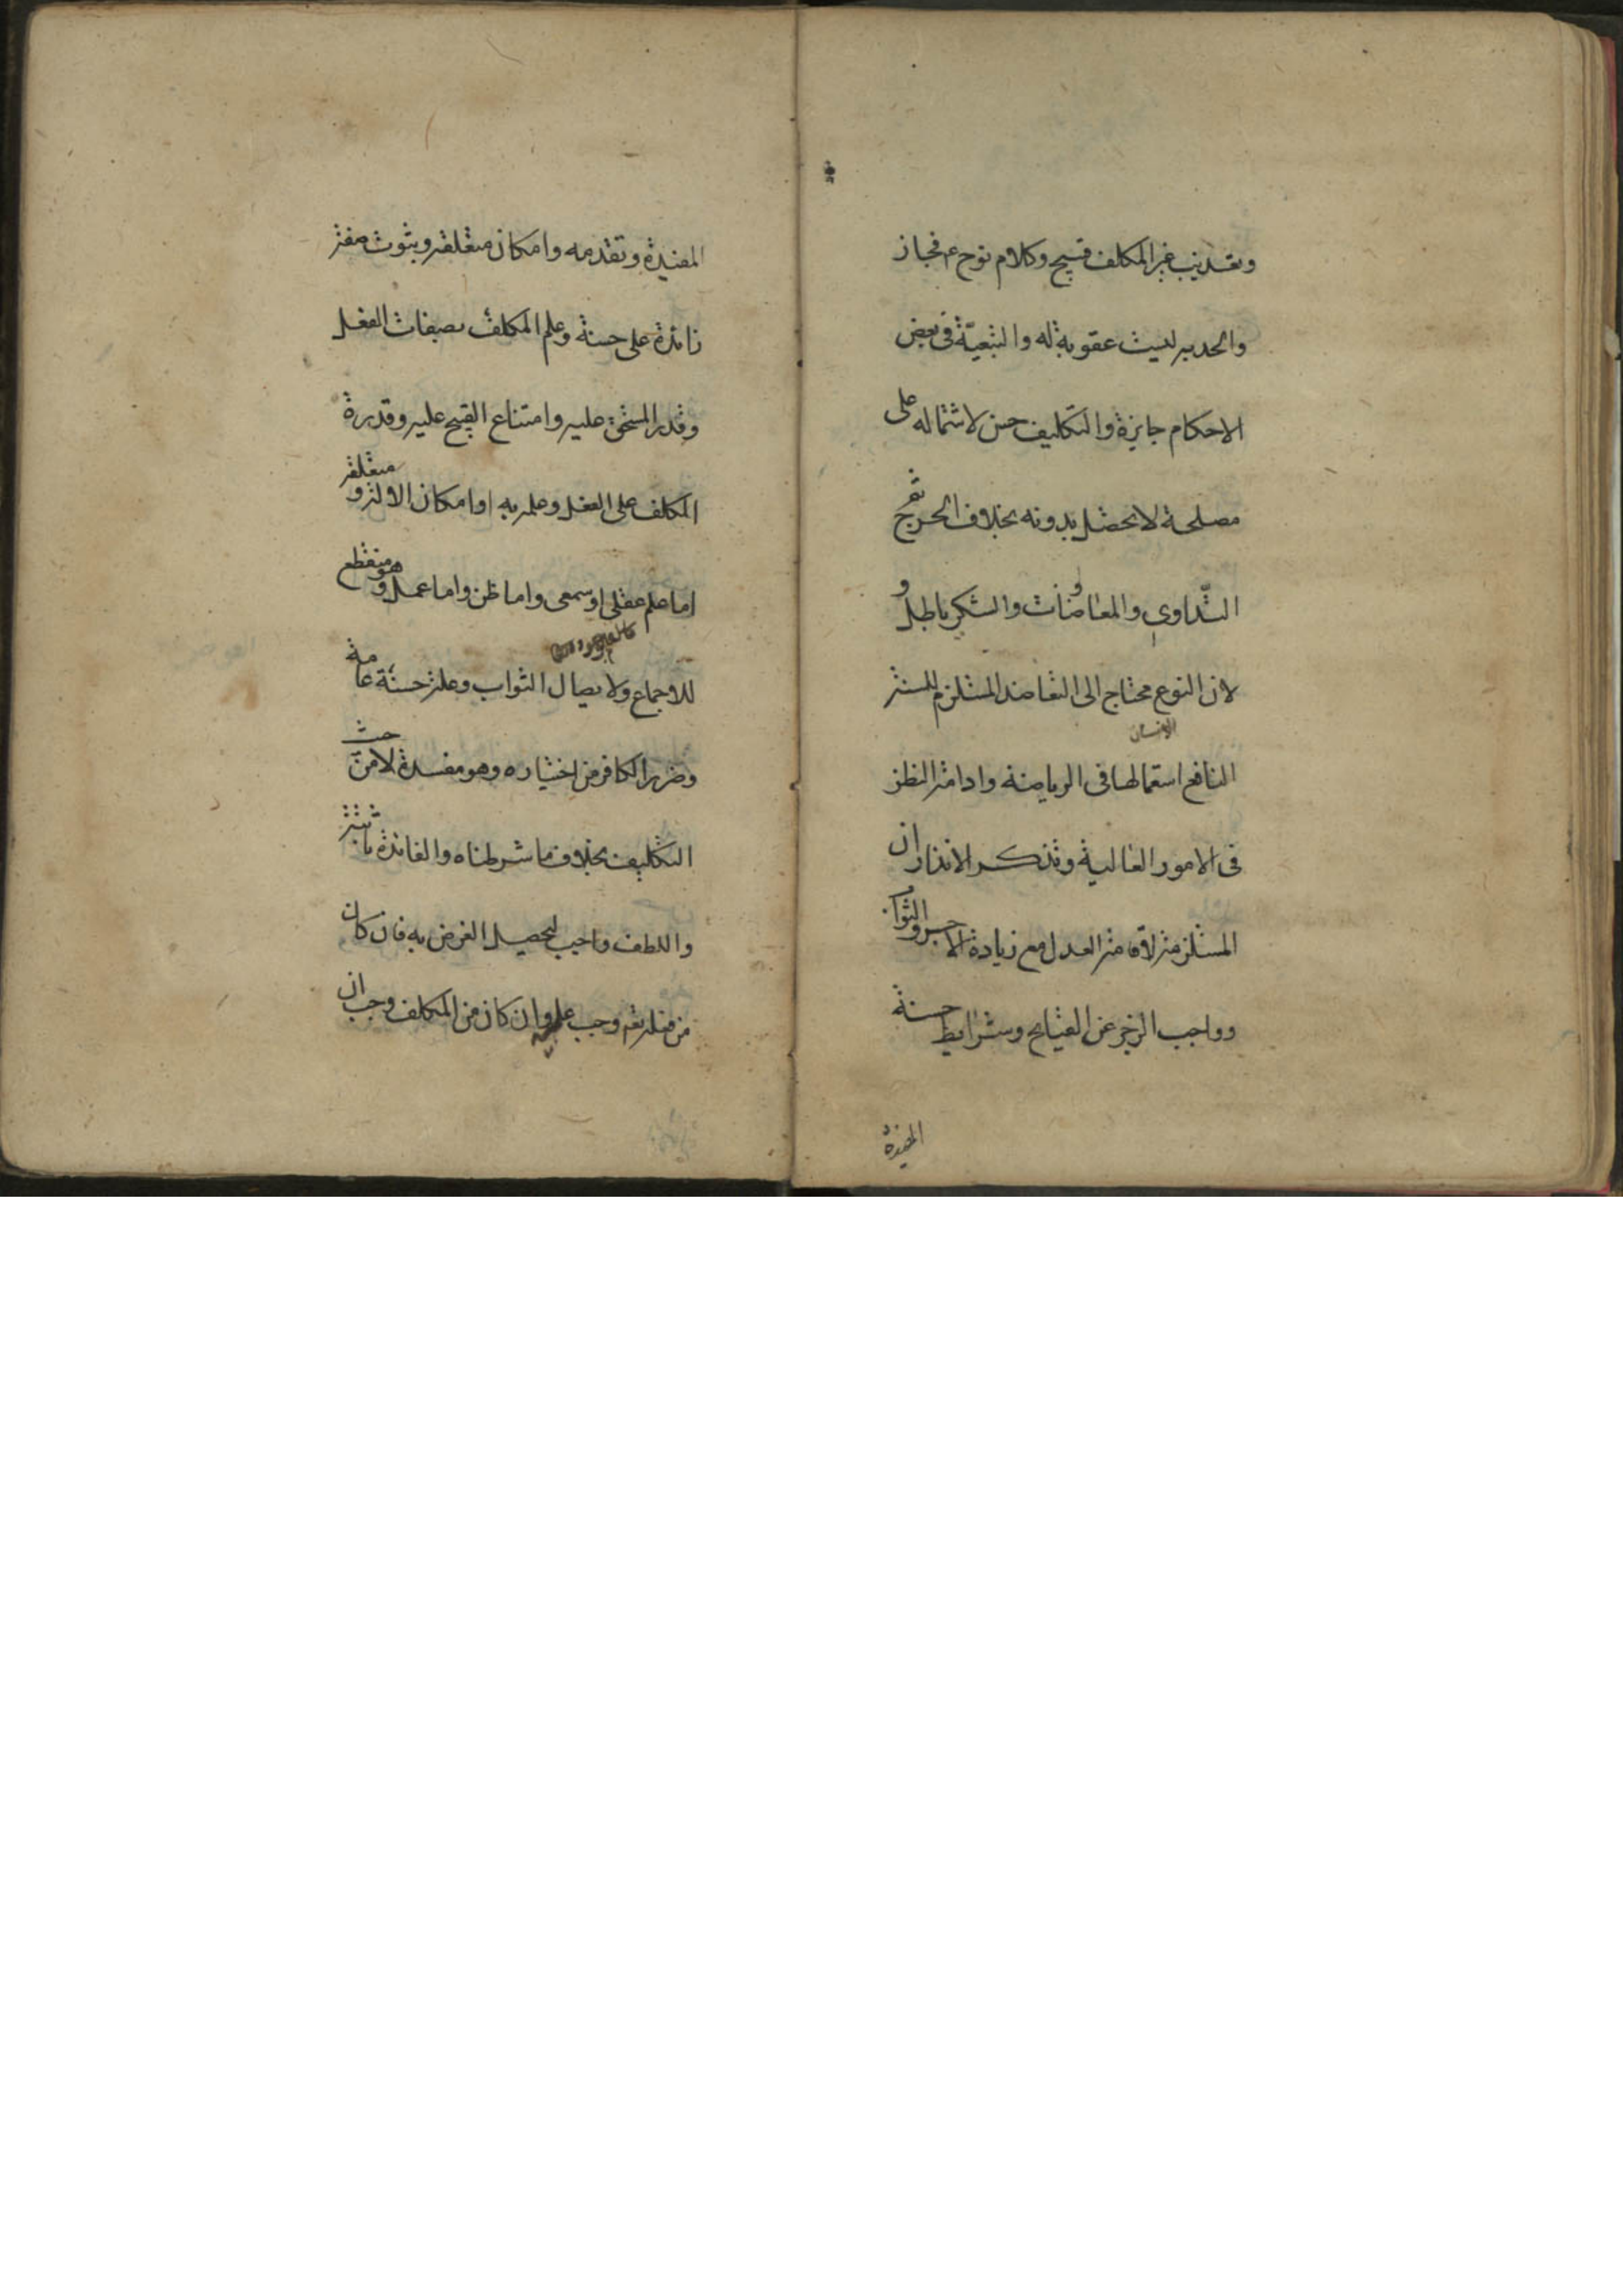 وتعذيب غير المكلف قبيح وكلام نوح ع م مجاز
والخدمة ليست عقوبة له والتبعيّة في بعض
الاحكام جايزة والتكليف حسن لاشتماله على
مصلحة لا تحصل بدونه بخلاف الجرح ثم
التّداوي والمعاوضات والشكر باطل و
لان النوع محتاج الى التعاضد المستلزم للسنة
الانسان
النافع استعمالها في الرياضة وادامة النظر
في الامور العالية وتذكر الانذارات
المستلزمة لاقامة العدل مع زيادة الاجر والثواب
وواجب لزجره عن القبايح وشرايط حسنة
المفيدة
المفيدة وتقدمه وامكان متعلقه وثبوت صفة
زائدة على حسنة وعلم المكلف بصفات الفعل
وقدر المستحق عليه وامتناع القبيح عليه وقدرة
المكلف على الفعل وعلمه به او امكان الالة و متعلقه
اما علم عقلي او سمعي واما ظن واما عمل وهو منقطع
للاجماع ولايصال الثواب وعلة حسنة عامة
وضرر الكافر من اختياره وهو مفسدة لا من حيث
التكليف بخلاف ما شرطناه والفائدة ثابتة
واللطف واجب لتحصيل الغرض به فان كان
من فعله تعم وجب عليه وان كان من المكلف وجب ان